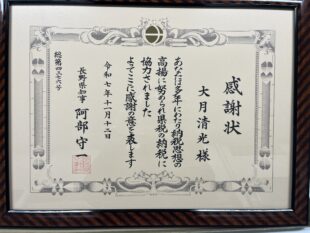 感謝状
大月清光様
あなたは多年にわたり納税思想の
高揚に努められ県税の納税に
協力されました
よってここに感謝の意を表します
令和七年十一月十二日
長野県知事 阿部守一